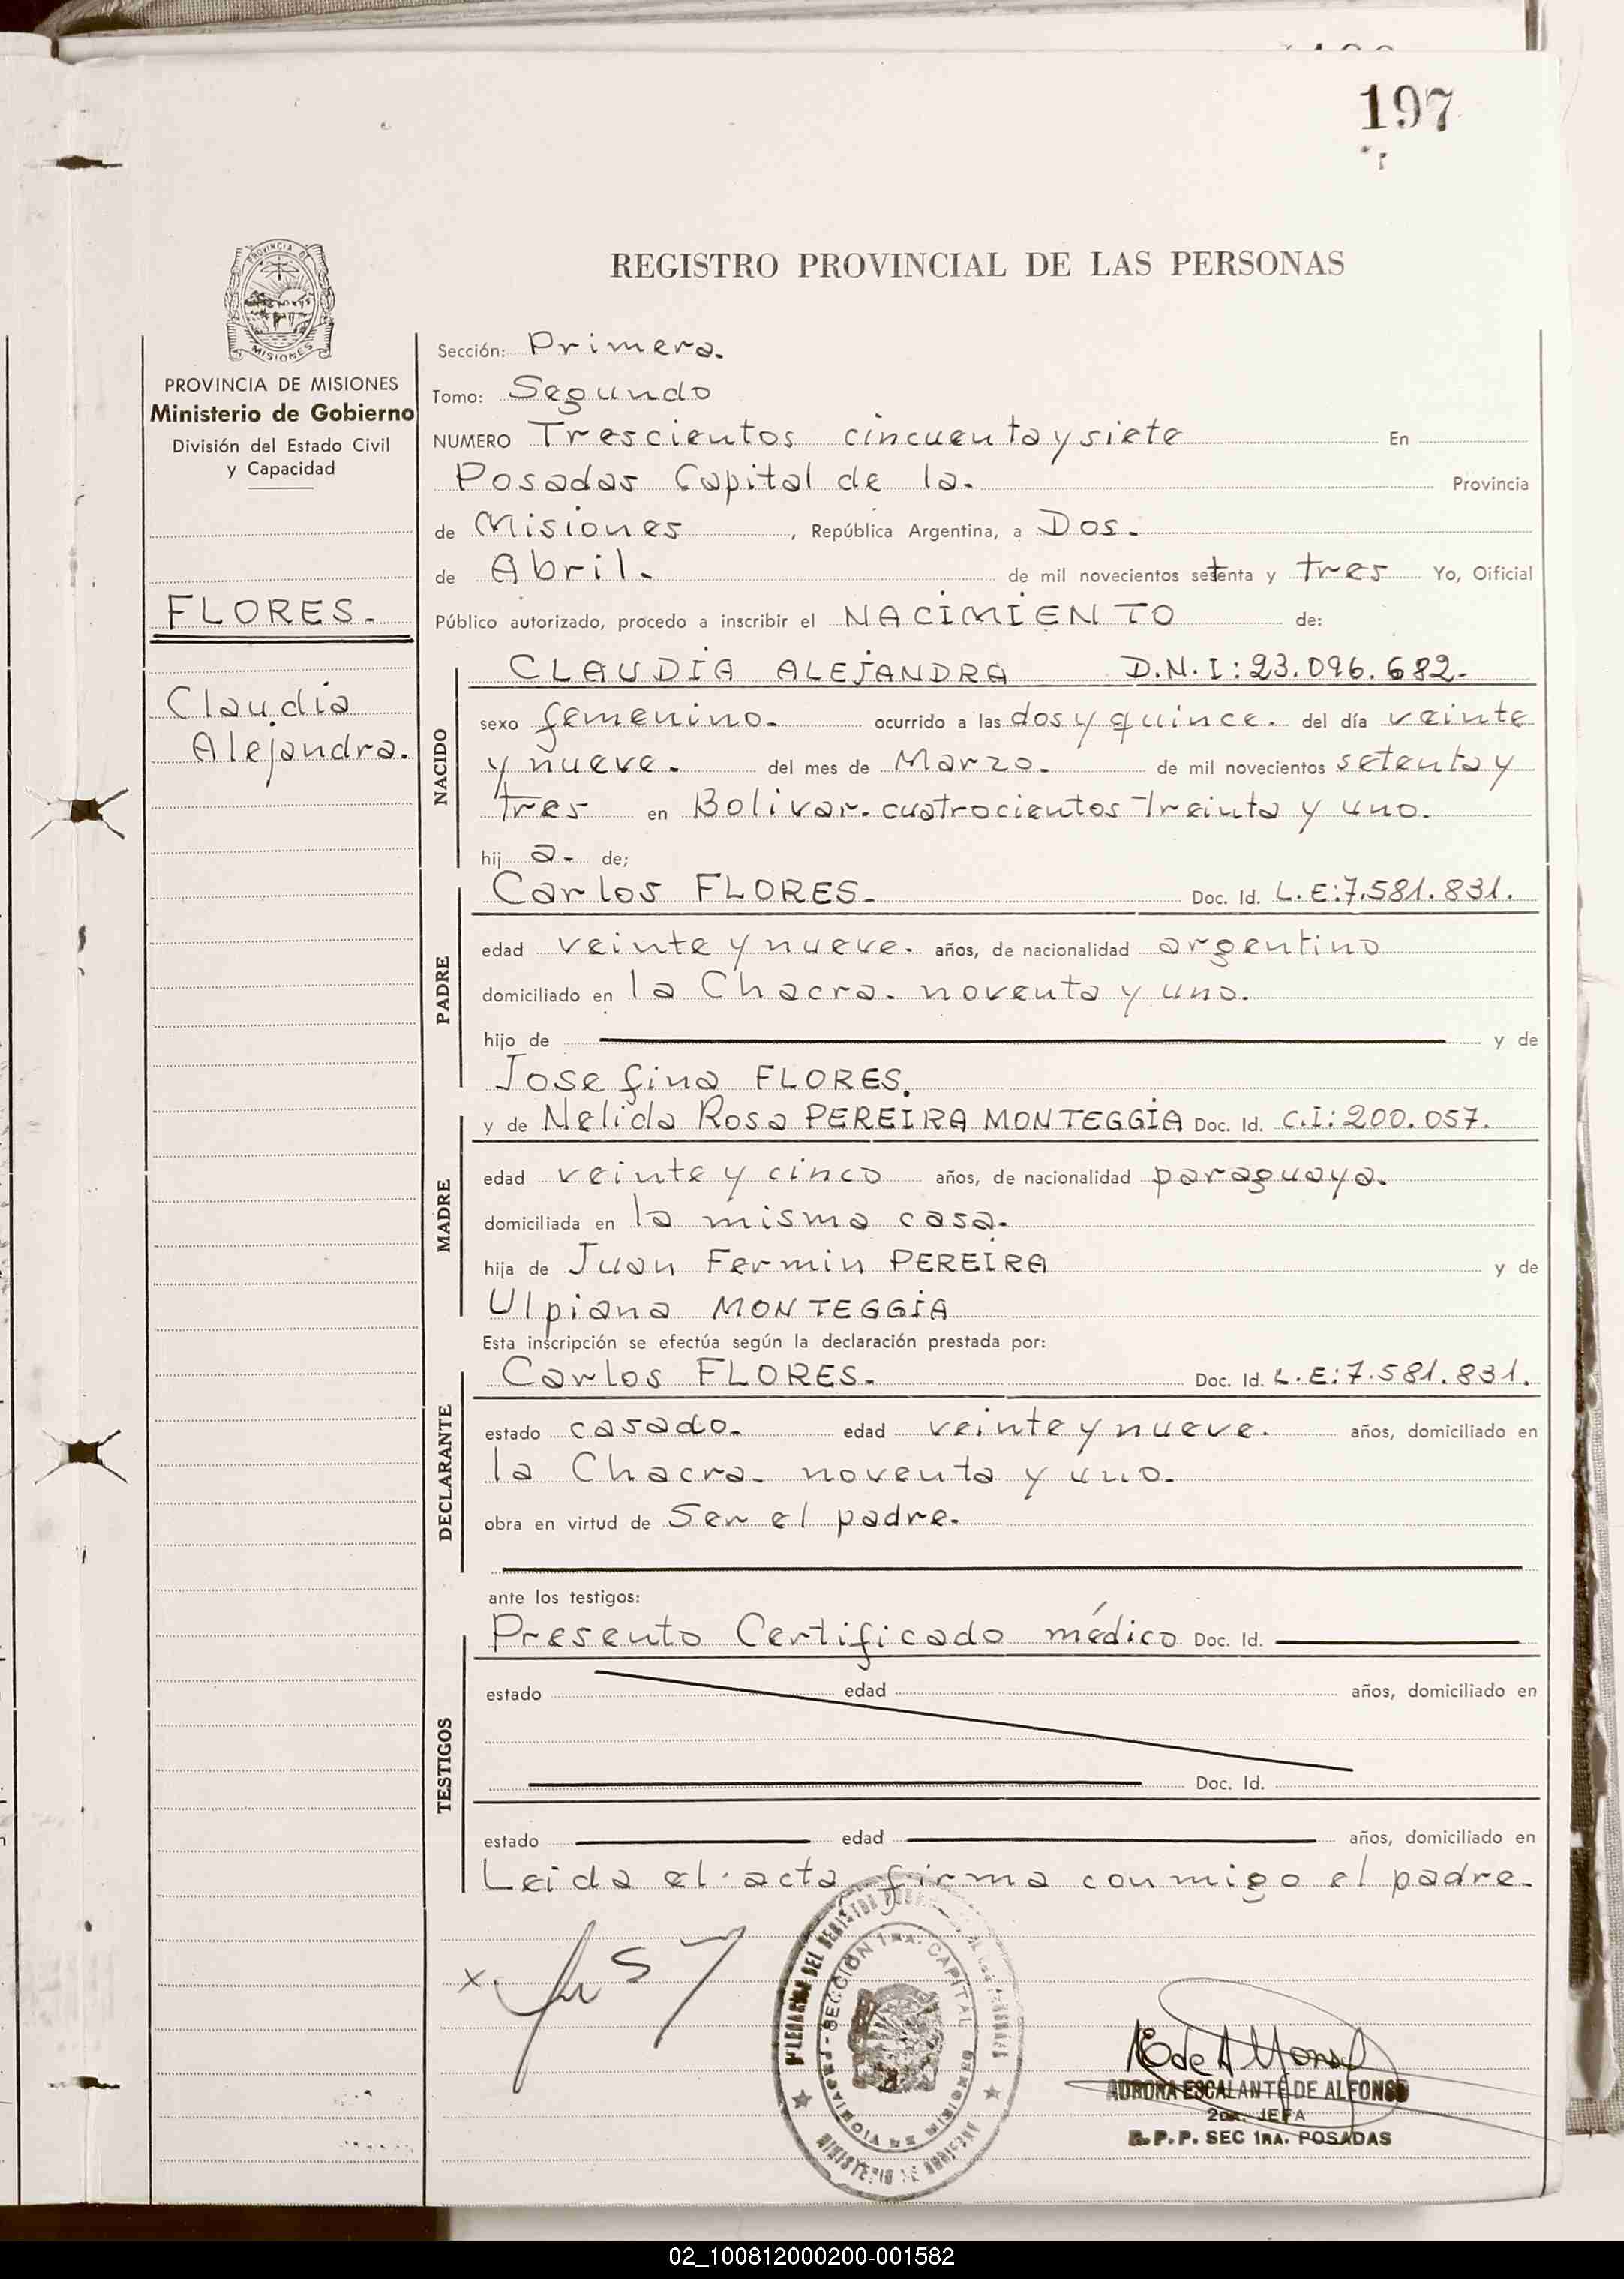 197
REGISTRO PROVINCIAL DE LAS PERSONAS
PROVINCIA DE
MISIONES
PROVINCIA DE MISIONES
Ministerio de Gobierno
División del Estado Civil
y Capacidad
FLORES.
Claudia
Alejandra.
Sección: Primera.
Tomo: Segundo
NUMERO Trescientos cincuenta y siete En
Posadas Capital de la. Provincia
de Misiones, República Argentina, a Dos.
de Abril. de mil novecientos setenta y tres Yo, Oificial
Público autorizado, procedo a inscribir el NACIMIENTO de:
NACIDO
CLAUDIA ALEJANDRA D.N.I: 23.096.682.-
sexo femenino. ocurrido a las dos y quince. del día veinte
y nueve. del mes de Marzo. de mil novecientos setenta y
tres en Bolivar. cuatrocientos Treinta y uno.
hij a. de;
PADRE
Carlos FLORES. Doc. Id. L.E: 7.581.831.
edad veinte y nueve. años, de nacionalidad argentino
domiciliado en la Chacra. noventa y uno.
hijo de y de
Josefina FLORES.
MADRE
y de Nelida Rosa PEREIRA MONTEGGIA Doc. Id. C.I: 200.057.
edad veinte y cinco años, de nacionalidad paraguaya.
domiciliada en la misma casa.
hija de Juan Fermin PEREIRA y de
Ulpiana MONTEGGIA
Esta inscripción se efectúa según la declaración prestada por:
DECLARANTE
Carlos FLORES. Doc. Id. L.E: 7.581.831.
estado casado. edad veinte y nueve. años, domiciliado en
la Chacra. noventa y uno.
obra en virtud de Ser el padre.
ante los testigos:
TESTIGOS
Presento Certificado médico Doc. Id.
estado edad años, domiciliado en
Doc. Id.
estado edad años, domiciliado en
Leida el acta firma conmigo el padre.
SECCIÓN 1RA. CAPITAL
AURORA ESCALANTE DE ALFONSO
2DA. JEFA
R.P.P. SEC 1RA. POSADAS
02_100812000200-001582